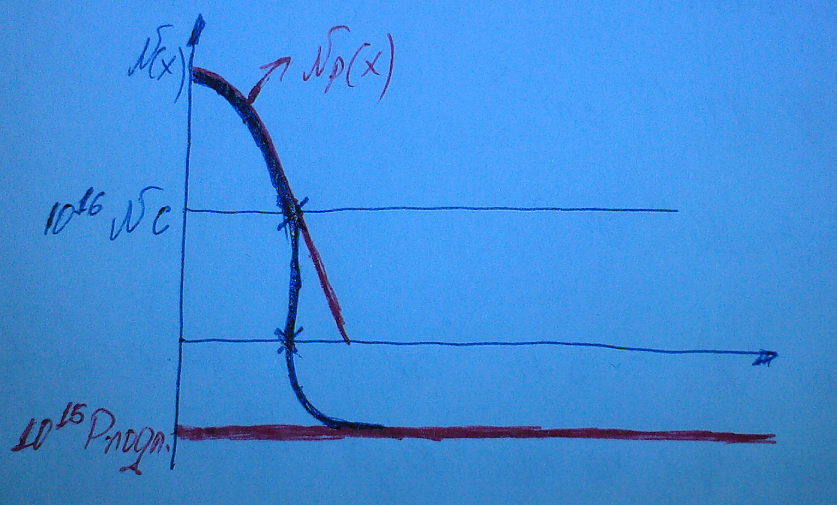 N(x)
Np(x)
10^16 Nc
10^15 Pподл.